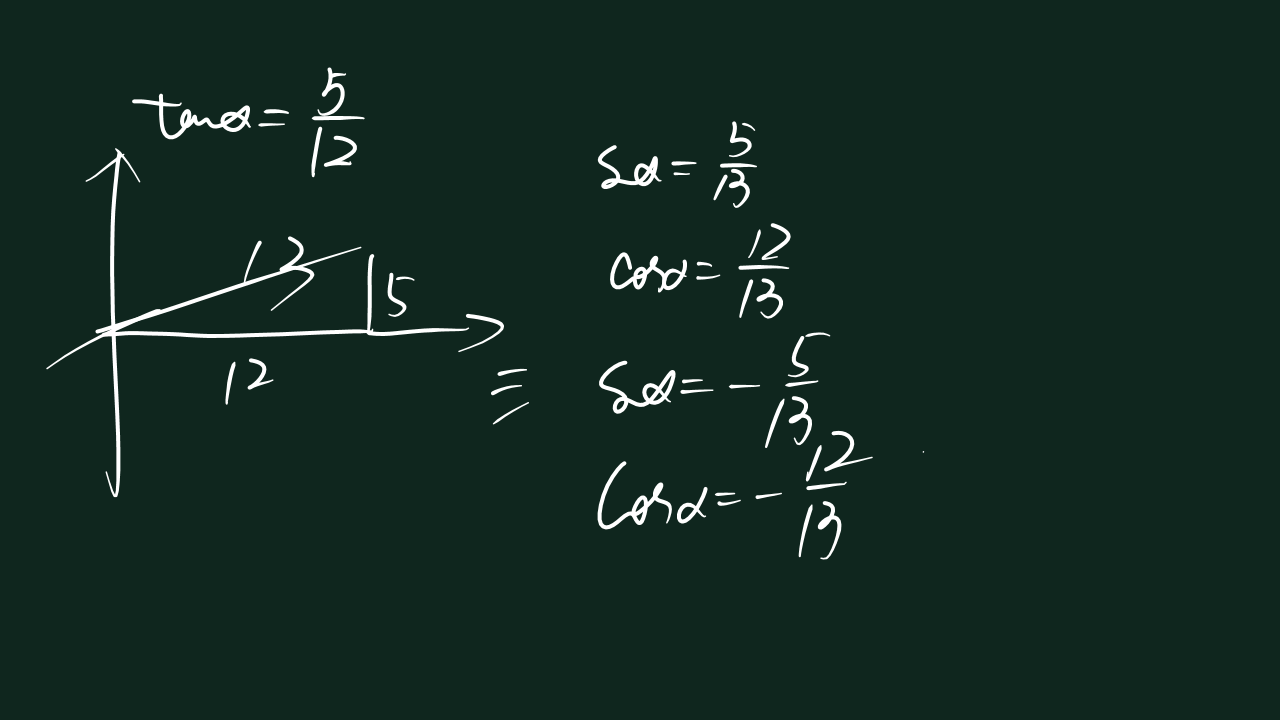 tanα = 5/12
13
5
12
Sα = 5/13
cosα = 12/13
三 Sα = - 5/13
Cosα = - 12/13